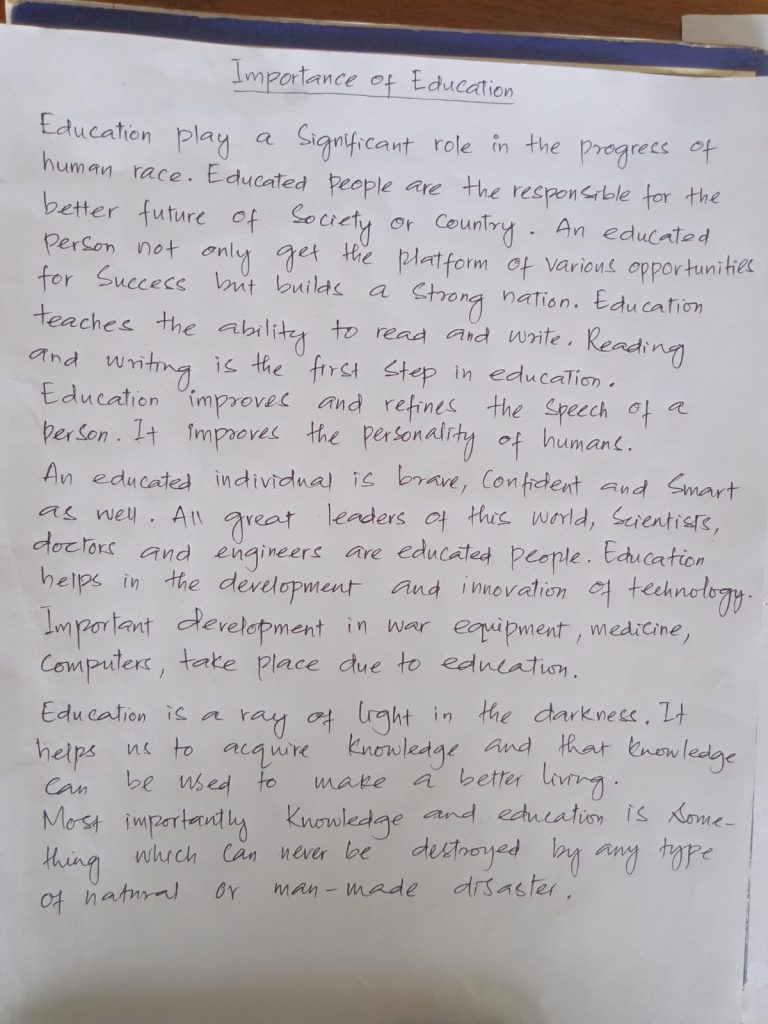 Importance of Education
Education play a significant role in the progress of
human race. Educated people are the responsible for the
better future of society or country. An educated
person not only get the platform of various opportunities
for success but builds a strong nation. Education
teaches the ability to read and write. Reading
and writing is the first step in education.
Education improves and refines the speech of a
person. It improves the personality of humans.
An educated individual is brave, confident and smart
as well. All great leaders of this world, scientists,
doctors and engineers are educated people. Education
helps in the development and innovation of technology.
Important development in war equipment, medicine,
computers, take place due to education.
Education is a ray of light in the darkness. It
helps us to acquire knowledge and that knowledge
can be used to make a better living.
Most importantly knowledge and education is some-
thing which can never be destroyed by any type
of natural or man-made disaster.